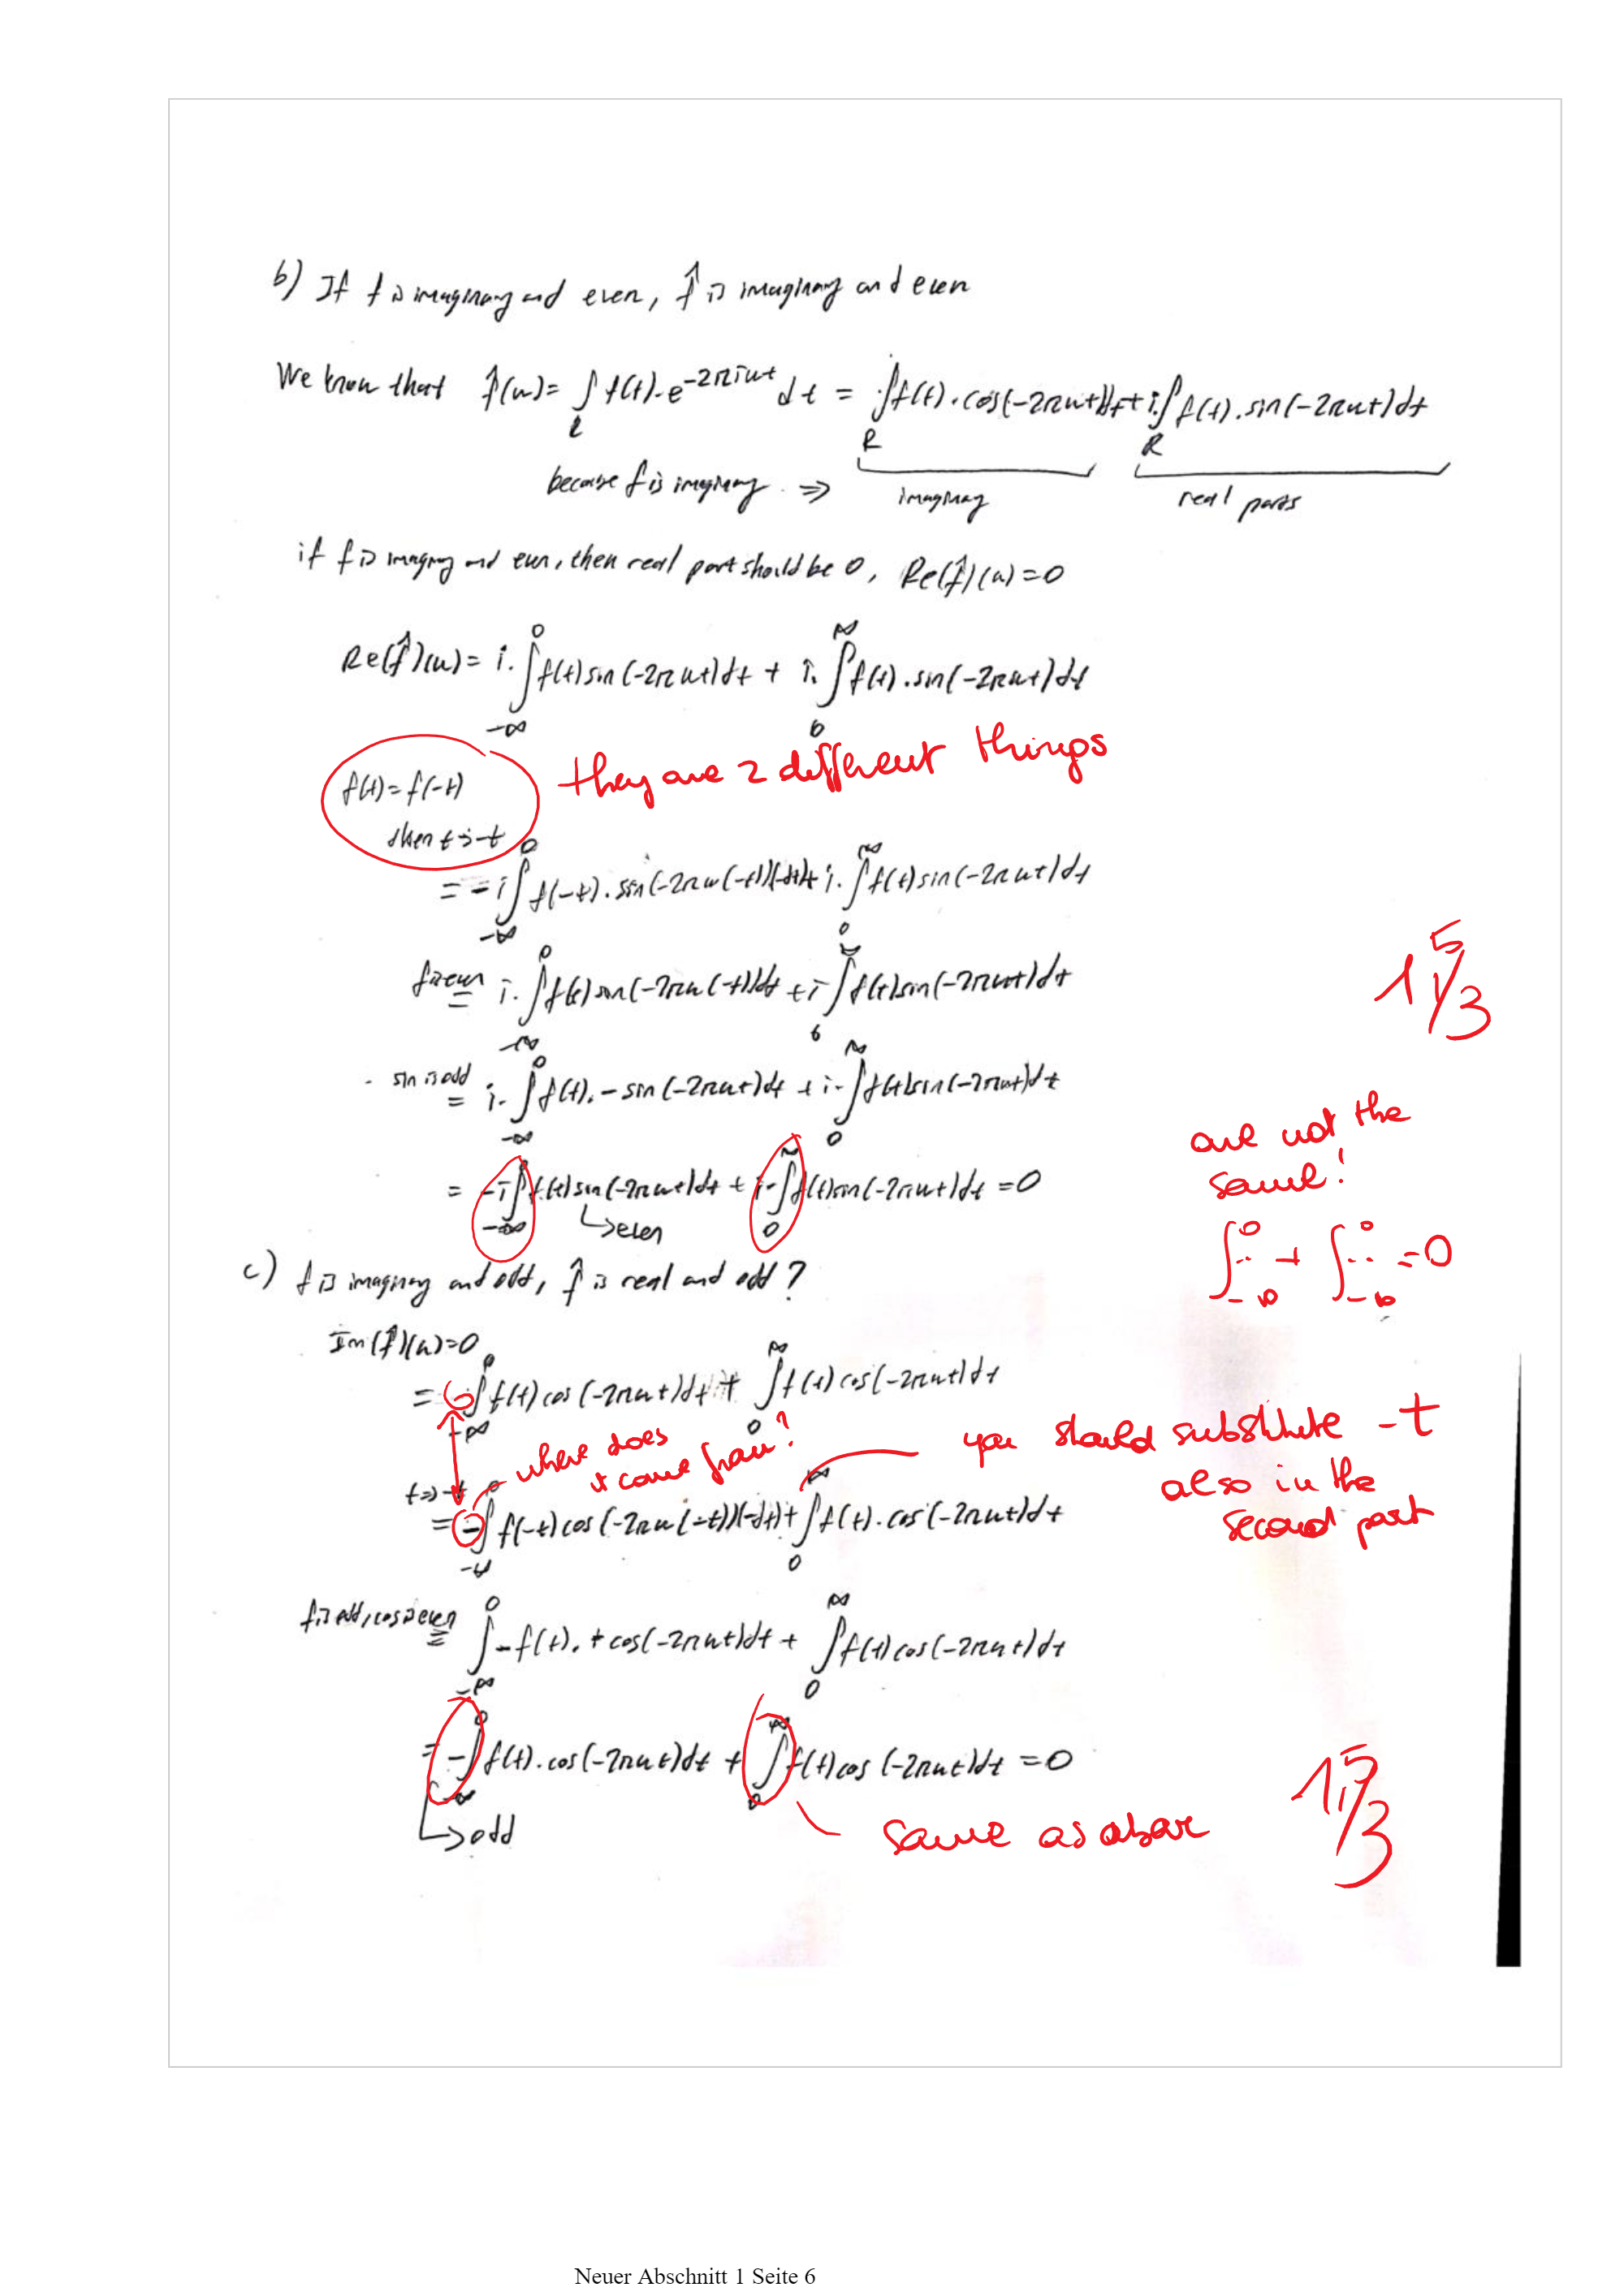 b) If f is imaginary and even, f̂ is imaginary and even
We know that f̂(u) = ∫ f(t)·e^{-2πiut} dt = ∫ f(t)·cos(-2πut)dt + i·∫ f(t)·sin(-2πut)dt
R R
because f is imaginary ⇒ imaginary real parts
if f is imaginary and even, then real part should be 0, Re(f̂)(u)=0
Re(f̂)(u) = i·∫_{-∞}^{0} f(t) sin(-2πut)dt + i·∫_{0}^{∞} f(t)·sin(-2πut)dt
f(t)=f(-t) they are 2 different things
then t⇒-t
= -i∫_{-∞}^{0} f(-t)·sin(-2πu(-t))(-dt) + i·∫_{0}^{∞} f(t) sin(-2πut)dt
f is even = i·∫_{-∞}^{0} f(t) sin(-2πu(-t))dt + i∫_{0}^{∞} f(t) sin(-2πut)dt
1,5/3
sin is odd = i·∫_{-∞}^{0} f(t)·-sin(-2πut)dt + i·∫_{0}^{∞} f(t) sin(-2πut)dt
are not the
same!
= -i∫_{-∞}^{0} f(t) sin(-2πut)dt + i·∫_{0}^{∞} f(t) sin(-2πut)dt = 0
↳even
∫_{-∞}^{0} ·· + ∫_{-∞}^{0} ·· = 0
c) f is imaginary and odd, f̂ is real and odd?
Im(f̂)(u)=0
= ∫_{-∞}^{0} f(t) cos(-2πut)dt + ∫_{0}^{∞} f(t) cos(-2πut)dt
where does
it come from?
you should substitute -t
also in the
second part
t⇒-t
= -∫_{-∞}^{0} f(-t) cos(-2πu(-t))(-dt) + ∫_{0}^{∞} f(t)·cos(-2πut)dt
f is odd, cos is even = ∫_{-∞}^{0} -f(t)·+cos(-2πut)dt + ∫_{0}^{∞} f(t) cos(-2πut)dt
= -∫_{-∞}^{0} f(t)·cos(-2πut)dt + ∫_{0}^{∞} f(t) cos(-2πut)dt = 0
↳odd
same as above
1,5/3
Neuer Abschnitt 1 Seite 6